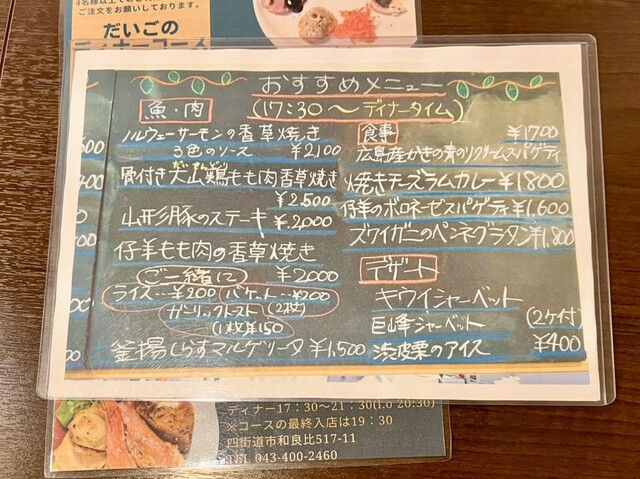 4名様以上でお
ご注文をお願いしております。
だいごの
ディナーコース
おすすめメニュー
(17:30～ディナータイム)
魚・肉
ノルウェーサーモンの香草焼き
3色のソース ¥2,100
だいせんどり
骨付き大山鶏もも肉香草焼き
¥2,500
山形豚のステーキ ¥2,000
仔羊もも肉の香草焼き
¥2,000
ご一緒に
ライス…¥200 バケット…¥200
ガーリックトースト(2枚)
(1枚¥150)
釜揚しらすマルゲリータ ¥1,500
食事
¥1700
広島産かきの青のりクリームスパゲティ
焼きチーズラムカレー ¥1800
仔羊のボロネーゼスパゲティ ¥1,600
ズワイガニのペンネグラタン ¥1,800
デザート
キウイシャーベット
巨峰シャーベット (2ケ付)
渋皮栗のアイス ¥400
ディナー17：30～21：30(l.o 20:30)
※コースの最終入店は19：30
四街道市和良比517-11
TEL 043-400-2460